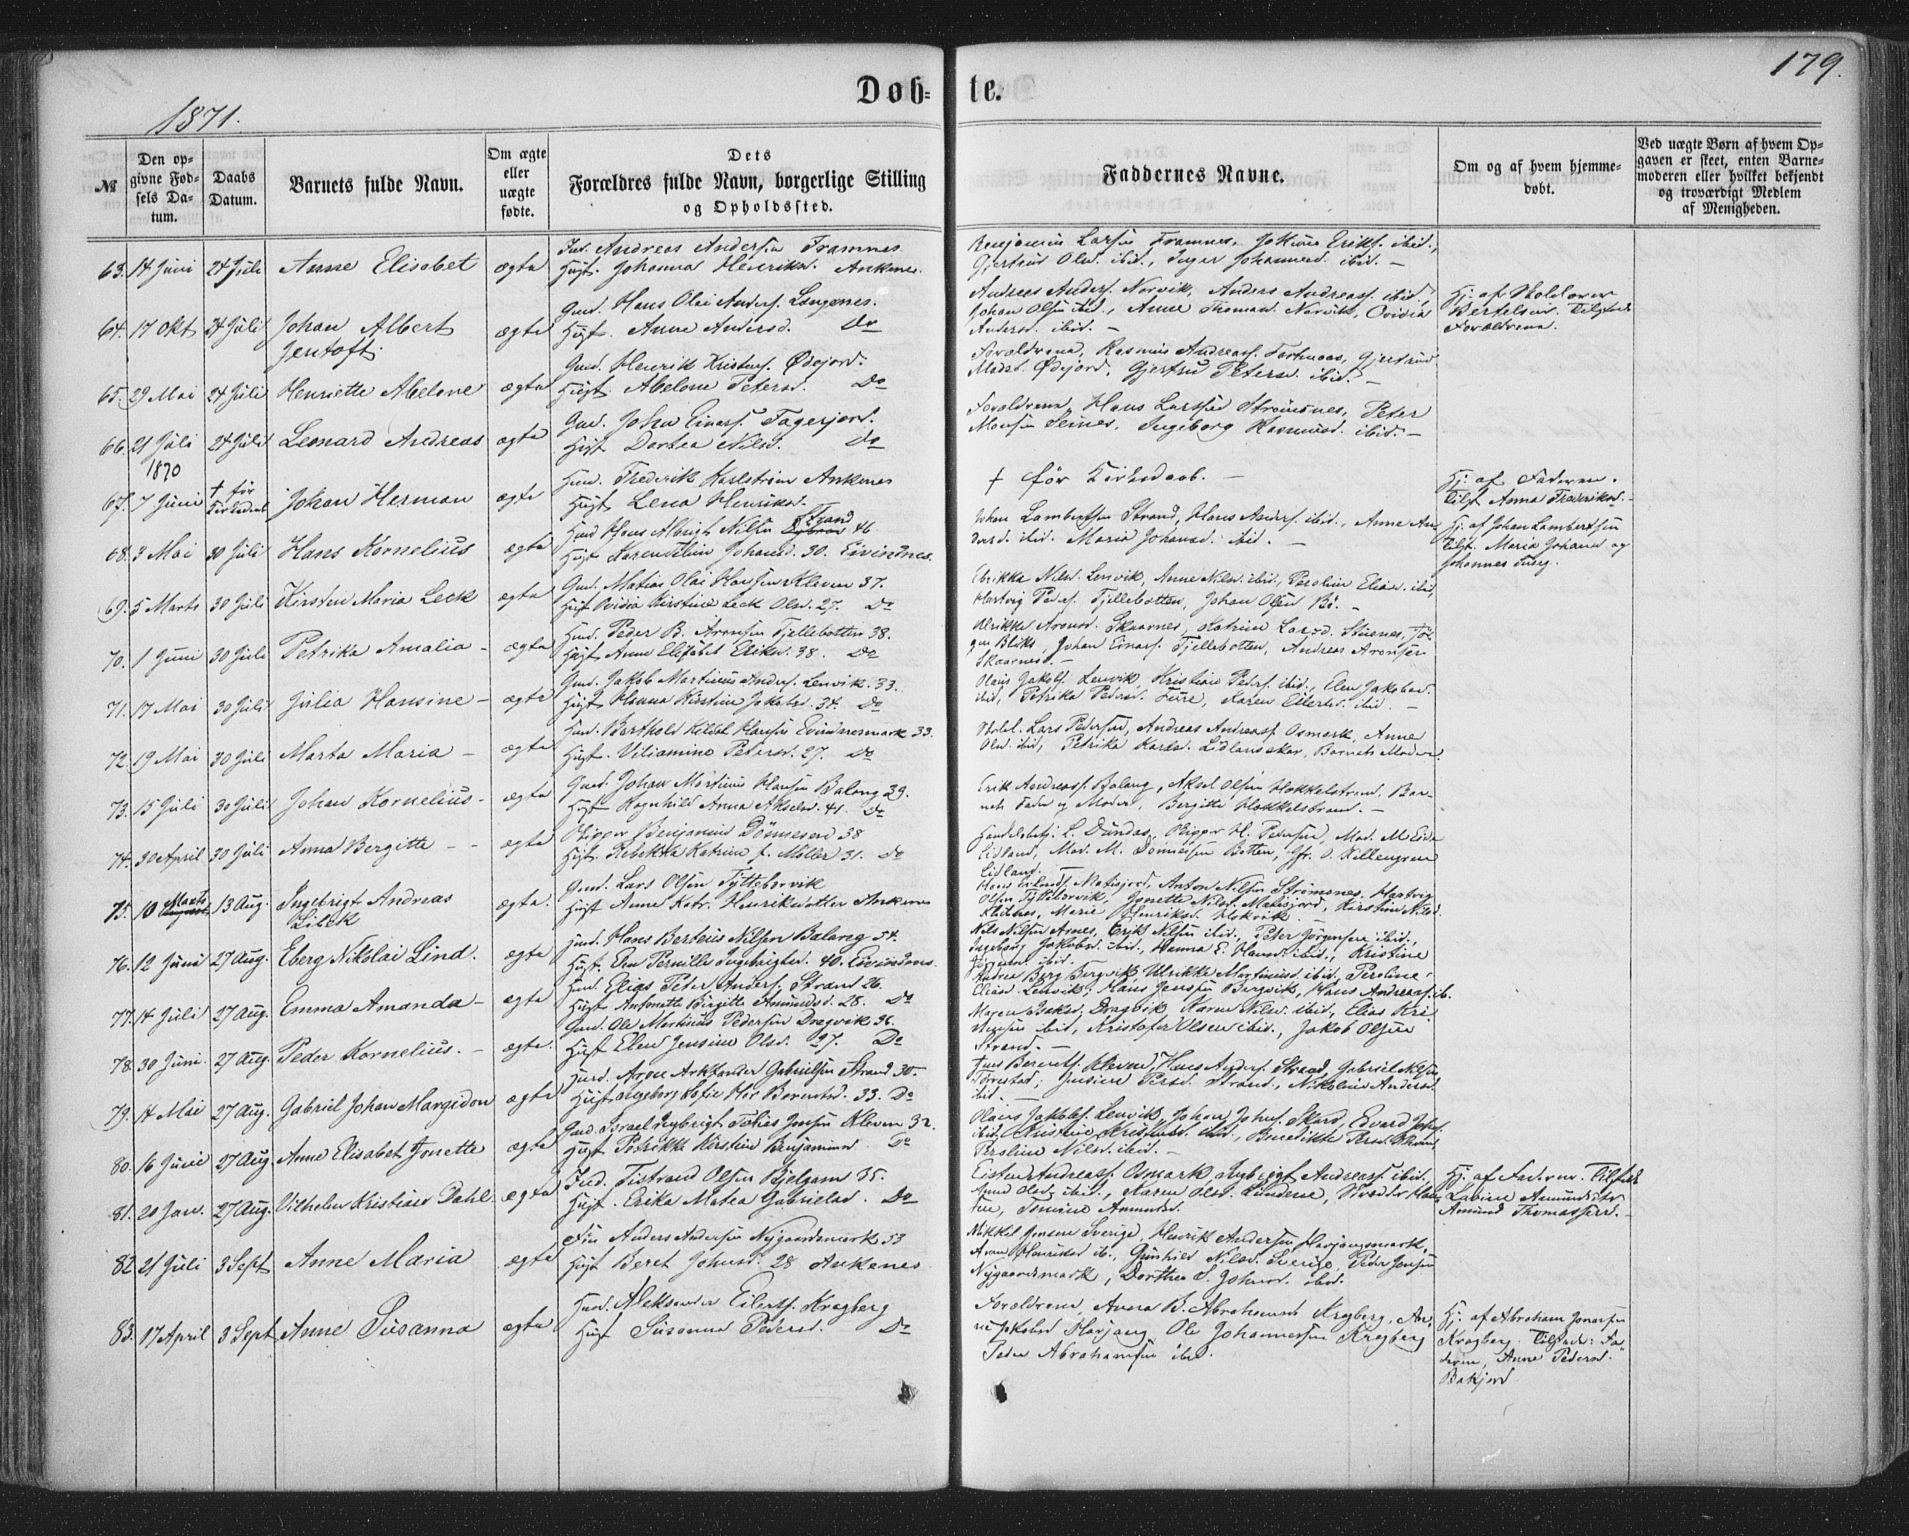 179.
Døb- te.
1871.
№
Den opgivne Fødsels Datum.
Daabs Datum.
Barnets fulde Navn.
Om ægte eller uægte fødte.
Dets Forældres fulde Navn, borgerlige Stilling og Opholdssted.
Faddernes Navne.
Om og af hvem hjemmedøbt.
Ved uægte Børn af hvem Opgaven er skeet, enten Barnemoderen eller hvilket bekjendt og troværdigt Medlem af Menigheden.
63. 14 Juni 24 Juli Anne Elisabet ægte
Ind. Andreas Andersen Framnes
Hust. Johanna Henriksd. Ankenes.
Benjamin Larsen Framnes, Eriks. ibid.,
Gjertrud Olsd. ibid., Inger Johannesd. ibid. —
64. 17 Okt 24 Juli Johan Albert Jentoft ægte
Gmd. Hans Olai Anders. Langenes.
Hust. Anne Andersd. Do
Andreas Anders. Narvik, Anders Andreass. ibid.,
Johan Olsen ibid., Anne Thomasd. Narvik, Ovidia
Andersd. ibid. —
Hj. af Skolelærer
Bertelsen. Tilstede
Forældrene.
65. 29 Mai 24 Juli Henriette Abelone ægte
Gmd. Henrik Kristens. Ødejord.
Hust. Abelone Petersd. Do
Forældrene, Rasmus Andreass. Gjertrud
Madsd. Ødejord, Gjertru Petersd. ibid. —
66. 21 Juli 24 Juli Leonard Andreas ægte
Gmd. Johan Einars. Fagerjord.
Hust. Dortea Nilsd. Do
Forældrene, Hans Larsen Strømsnes, Peter
Monsen Seines, Ingeborg Rasmusd. ibid. —
1870
67. 7 Juni † før Kirkedaab Johan Herman ægte
Hmd. Frederik Karlstrøm Ankenes
Hust. Lena Henriksd.
† før Kirkedaab. —
Hj. af Faderen.
Tilst. Anna Frederiksd. —
68. 3 Mai 30 Juli Hans Kornelius ægte
Hmd Hans Albrigt Nilsen Strand 46
Hust. Karen Eline Johansd. 30. Evindnes.
Johan Lambertsen Strand, Hans Anders. ibid., Anne Andersd. ibid. Maria Johansd. ibid. —
Hj. af Johan Lambertsen
Tilst. Maria Johansd og
Johannes
69. 5 Marts 30 Juli Kirsten Maria Leck ægte
Gmd. Matias Olai Hansen Kleven 37.
Hust Ovidia Kirstine Leck Olsd. 27. Do
Ulrikka Nilsd. Lenvik, Anne Nilsd. ibid., Peroline Eliasd. ibid.,
Hartvig Peders. Fjellebotten, Johan Olsen Bø. —
70. 1 Juni 30 Juli Petrika Amalia — ægte
Hmd. Peder B. Aronsen Fjellebotten 38.
Hust Anne Elisabet Eriksd. 38. Do
Ulrikke Aronsd. Skaarnes, Katrine Larsd. Stuenes, Jørgen Bliks, Johan Einars. Fjellebotten, Andreas Aronsen
Skaarnes. —
71. 17 Mai 30 Juli Julia Hansine — ægte
Gmd. Jakob Martinus Anders. Lenvik. 33.
Hust. Hanna Kirstine Jakobsd. 34. Do
Olaus Jakobs. Lenvik, Kristian Peders. ibid., Elen Jakobsd.
ibid., Petrika Pedersd. Furre, Karen Ellertsd. ibid. —
72. 19 Mai 30 Juli Marta Maria — ægte
Hmd. Berthold Kildal Hansen Evindnesmark 33.
Hust. Viliamine Petersd. 27. Do
Skolel. Lars Pedersen, Andreas Andreass. Osmark, Anne
Olsd. ibid., Petrika Karlsd. Lidlandsskar, Barnets Moder
73. 15 Juli 30 Juli Johan Kornelius — ægte
Gmd. Johan Martinus Hansen Balang 39.
Hust. Ragnhild Anna Akselsd. 41. Do
Erik Andreass. Balang, Aksel Olsen Hokkelstrand, Barnets Fader og Moder, Bergitte Hokkelstrand. —
74. 30 April 30 Juli Anna Bergitte — ægte
Skipper Benjamin Dønnesen 38
Hust. Rebekka Katrine f. Møller 31. Do
Handelsbetj. L. Dundas, Skipper H. Pedersen, Mad. M.
Lidland, Mad. M. Dønnesen Botten, Jfr. O. Killengren
Lidland. —
75. 10 Marts 13 Aug. Ingebrigt Andreas Libek ægte.
Gmd. Lars Olsen Tyttebærvik
Hust Anne Katr. Henriksdatter Ankenes
Hans Erlands. Matisjord, Anton Nilsen Strømsnes, Hartvig
Olsen Tyttebærvik, Jonette Nilsd. Matisjord, Kirstine Nilsd.
Marie Henriksd. Hokvik. —
76. 12 Juni 27 Aug. Eberg Nikolai Lind. ægte
Hmd. Hans Berteus Nilsen Balang 54.
Hust. Elen Pernille Ingebrigtsd. 40. Evindnes.
Nils Nilsen Arnes, Erik Nilsen ibid., Peter Jørgensen ibid.,
Ingeborg Jakobsd. ibid., Hanna E. Hansd. ibid., Kristine
Jørgensd. ibid.
77. 14 Juli 27 Aug. Emma Amanda — ægte
Hmd. Elias Peder Anders. Strand 26.
Hust Antonette Birgitte Amundsd. 28. Do
Andrea Berg Bergvik, Ulrikke Martinusd. ibid., Peroline
Eliasd. Lenvik, Hans Jensen Bergvik, Hans Andreass. ib.
78. 30 Juni 27 Aug. Peder Kornelius. — ægte.
Gmd. Ole Martinus Pedersen Dragvik 36.
Hust Elen Jensine Olsd. 27. Do
Maren Dragvik, Karen Nilsd. ibid., Elias Kristensen ibid., Kristofer Olsen ibid., Jakob Olsen
Strand. —
79. 14 Mai 27 Aug. Gabriel Johan Margidon ægte
Hmd. Aron Arktander Gabrielsen Strand 30.
Hust Ingeborg Sofie Berntsd. 33. Do
Jens Berents. Kleven, Hans Anders. Strand, Gabriel Nilsen
Forrestad, Jensine Persd. Strand, Nikoline Andersd.
ibid. —
80. 16 Juni 27 Aug. Anne Elisabet Jonette ægte
Gmd Israel Ingebrigt Tobias Jensen Kleven 32.
Hust Petrikke Kirstine Benjaminsd. Do
Olaus Jakobs. Lenvik, Johan Johns. Skard, Edvard
ibid., Kristine Kristensd. ibid., Benedikte Persd. Strand,
Peroline Nilsd. ibid. —
81. 20 Jan. 27 Aug. Vilhelm Kristian Dahl. ægte
Ind. Tistrand Olsen Bjelgam 35.
Hust. Erika Matea Gabrielsd. Do
Eisten Andreass. Osmark, Ingbrigt Andreass. ibid.,
Anne Olsd. ibid., Karen Olsd.
Tomine Amundsd.
Hj. af Faderen. Tilstede
Lavine Amundsdtr
Amund Thomassen. —
82. 21 Juli 3 Sept Anne Maria ægte
Fin Anders Andersen Nygaardsmark 53
Hust Beret Johnsd. 28 Ankenes
Mikkel Jonsen Sverige, Henrik Andersen Harjangsmark,
Henriksd. ib., Gunhild Nilsd. Sverige, Peder Jonsen
Nygaardsmark, Dorthea S. Johnsd. ibid.
83. 17 April 3 Sept Anne Susanna ægte
Hmd. Aleksander Eilerts. Kragberg
Hust Susanna Pedersd. Do
Forældrene, Anna B. Abrahamsd Kragberg, Anne Jakobsd Harjang, Ole Johannessen Kragberg
Peder Abrahamsen ibd.
Hj. af Abraham Jonassen
Kragberg. Tilstede: Faderen, Anne Pedersd.
Bakjord